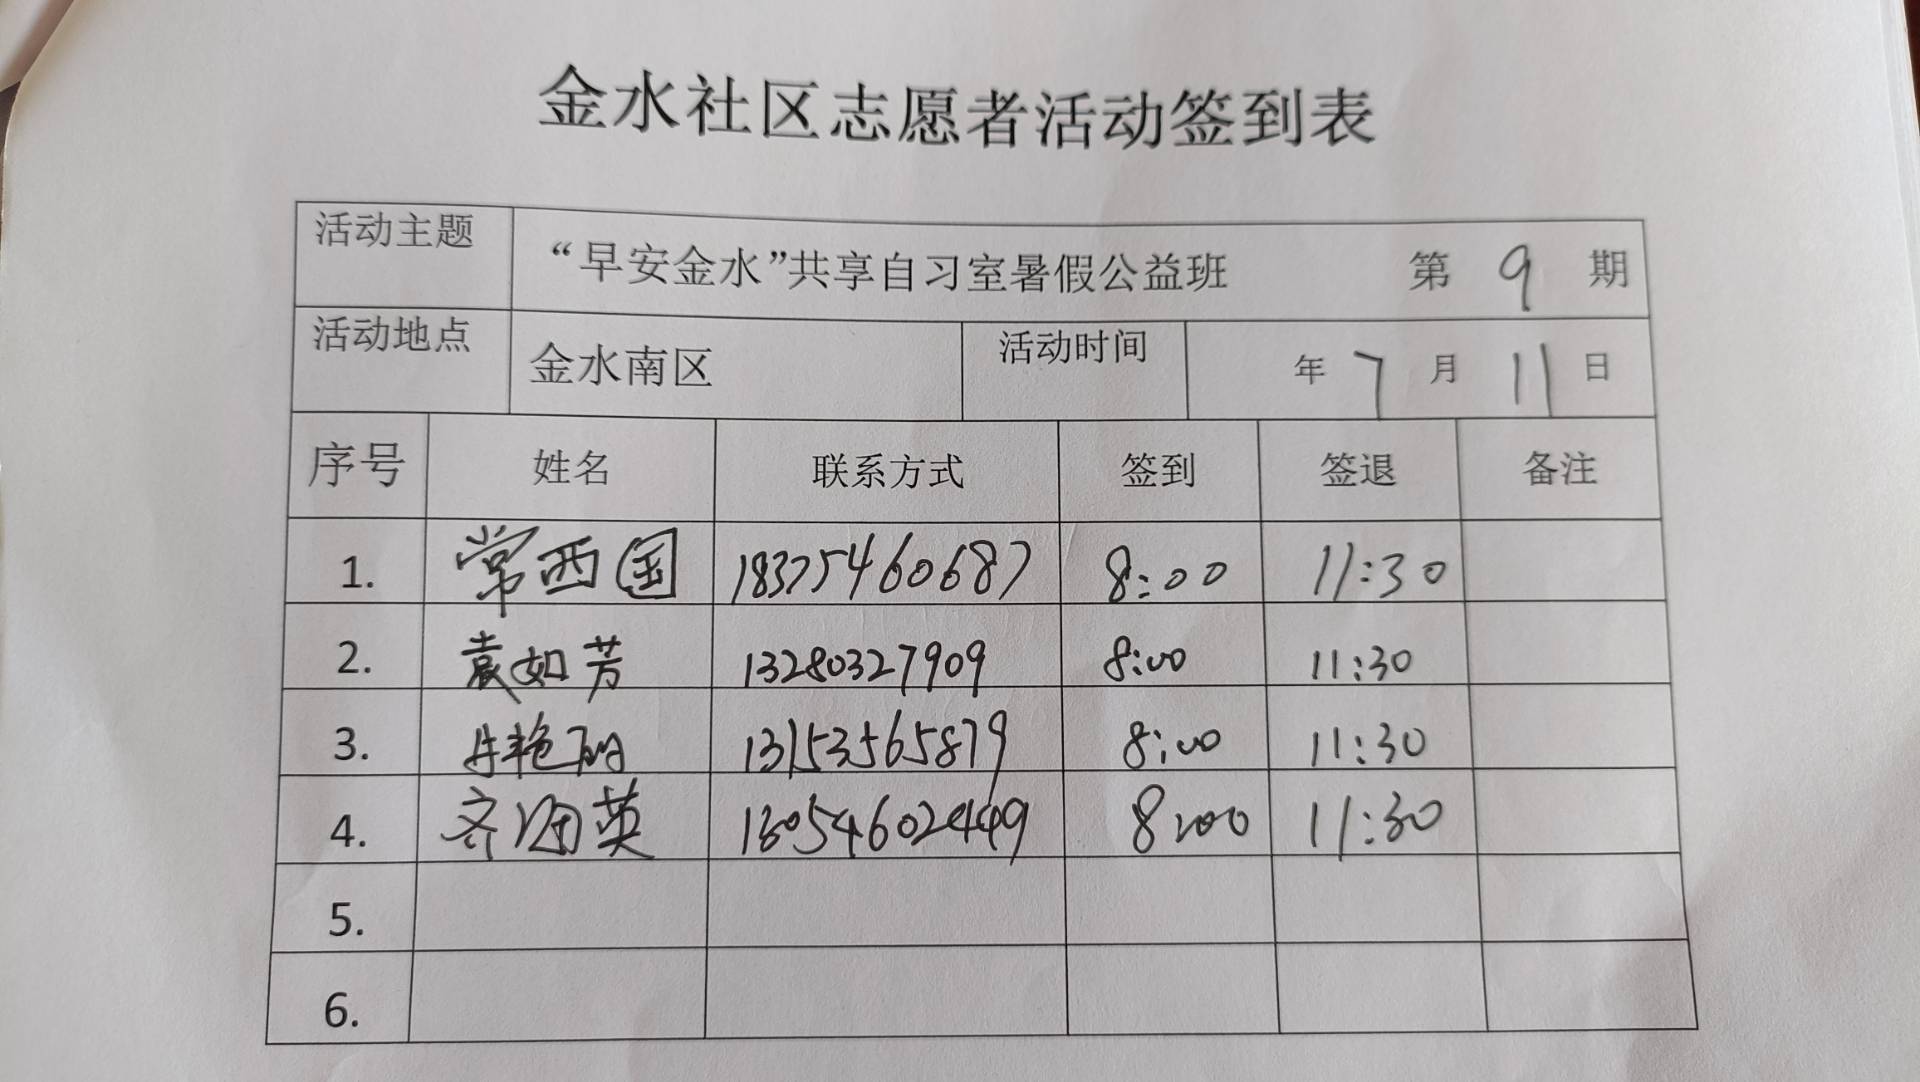 金水社区志愿者活动签到表
活动主题 “早安金水”共享自习室暑假公益班 第 9 期
活动地点 金水南区 活动时间 年 7 月 11 日
序号 姓名 联系方式 签到 签退 备注
1. 常西国 18375460687 8:00 11:30
2. 袁如芳 13280327909 8:00 11:30
3. 13153565879 8:00 11:30
4. 13054602449 8:00 11:30
5.
6.